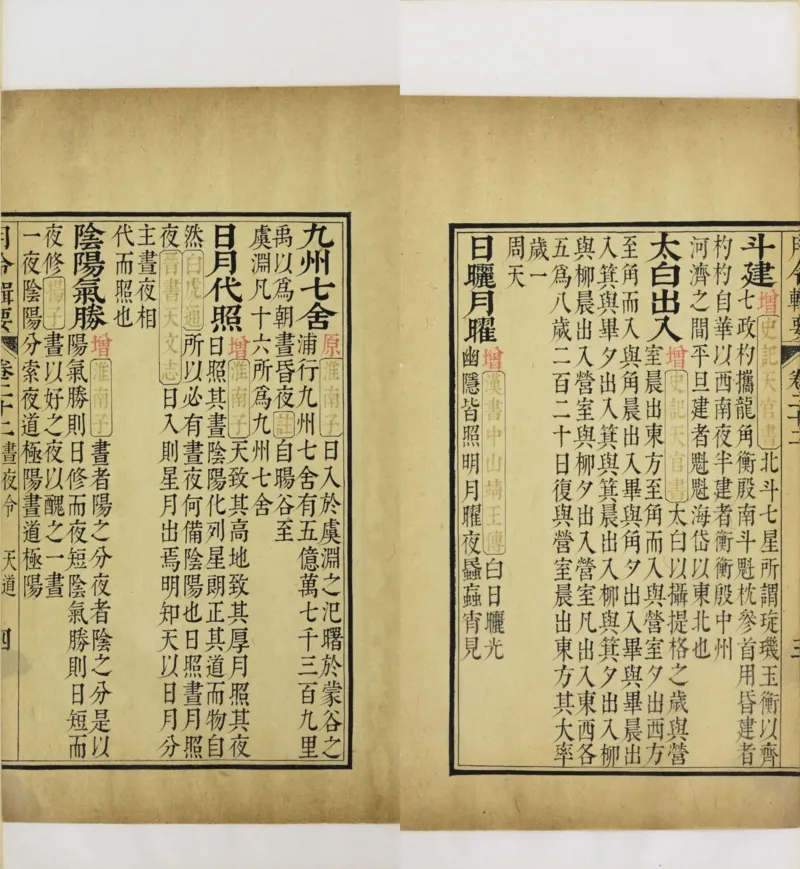 月令輯要 卷二十二 三
斗建
增史記天官書北斗七星所謂琁璣玉衡以齊
七政杓攜龍角衡殷南斗魁枕參首用昏建者
杓杓自華以西南夜半建者衡衡殷中州
河濟之間平旦建者魁魁海岱以東北也
太白出入
增史記天官書太白以攝提格之歲與營
室晨出東方至角而入與營室夕出西方
至角而入與角晨出入畢與角夕出入畢與畢晨出
入箕與畢夕出入箕與箕晨出入柳與箕夕出入柳
與柳晨出入營室與柳夕出入營室凡出入東西各
五爲八歲二百二十日復與營室晨出東方其大率
歲一
周天
日曬月曜
增漢書中山靖王傳白日曬光
幽隱皆照明月曜夜蟁蝱宵見
九州七舍
原淮南子日入於虞淵之汜曙於蒙谷之
浦行九州七舍有五億萬七千三百九里
禹以爲朝晝昏夜註自暘谷至
虞淵凡十六所爲九州七舍
日月代照
增淮南子天致其高地致其厚月照其夜
日照其晝陰陽化列星朗正其道而物自
然白虎通所以必有晝夜何備陰陽也日照晝月照
夜晉書天文志日入則星月出焉明知天以日月分
主晝夜相
代而照也
陰陽氣勝
增淮南子晝者陽之分夜者陰之分是以
陽氣勝則日修而夜短陰氣勝則日短而
夜修楊子晝以好之夜以醜之一晝
一夜陰陽分索夜道極陰晝道極陽
月令輯要 卷二十二 晝夜令 天道 四